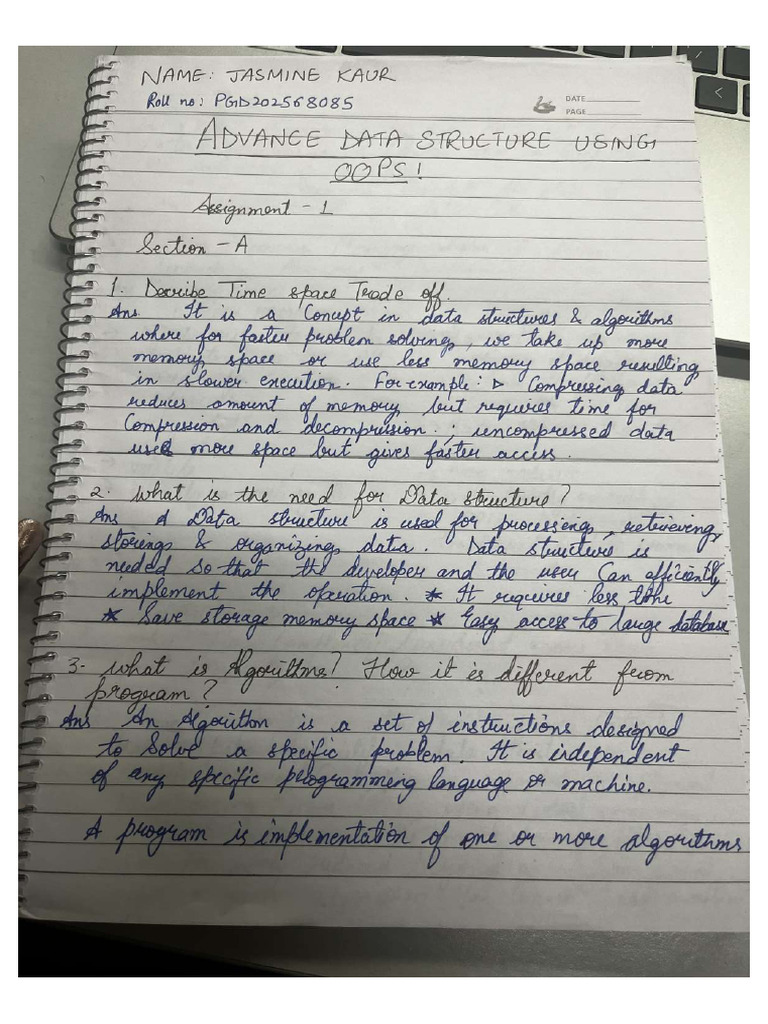 NAME: JASMINE KAUR
Roll no: PGD202568085
DATE
PAGE
ADVANCE DATA STRUCTURE USING
OOPS!
Assignment - 1
Section - A
1. Describe Time space Trade off.
Ans. It is a Concept in data structures & algorithms
where for faster problem solving, we take up more
memory space or use less memory space resulting
in slower execution. For example: ▷ Compressing data
reduces amount of memory but requires time for
Compression and decompression. ; uncompressed data
uses more space but gives faster access.
2. What is the need for Data structure?
Ans A Data structure is used for processing, retrieving,
storing & organizing data. Data structure is
needed so that the developer and the user Can efficiently
implement the operation. * It requires less time
* Save storage memory space * Easy access to large database
3- What is Algorithms? How it is different from
program?
Ans An Algorithm is a set of instructions designed
to Solve a specific problem. It is independent
of any specific programming language or machine.
A program is implementation of one or more algorithms